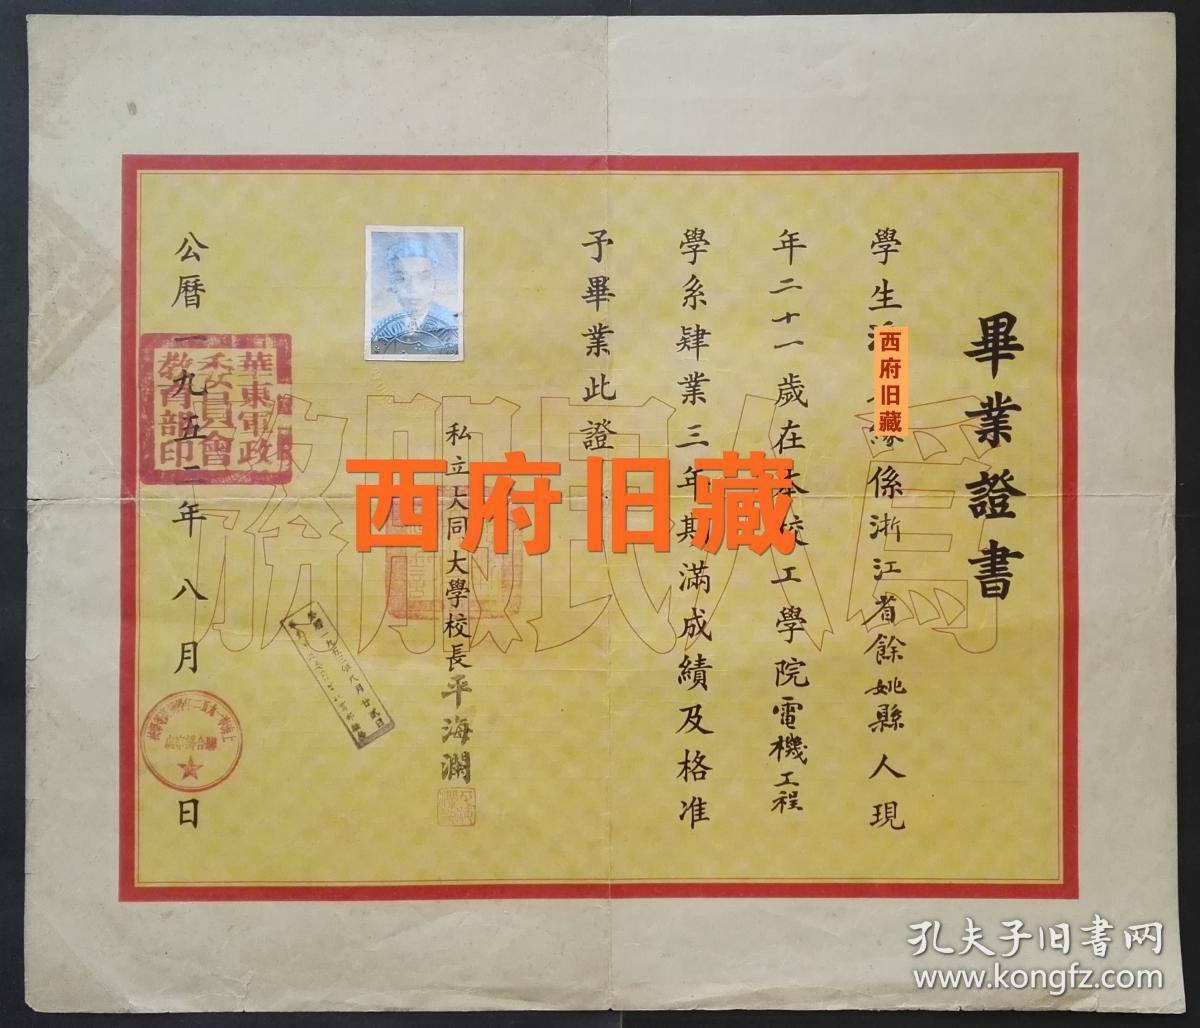 畢業證書
學生
緣係浙江省餘姚縣人現
年二十一歲在本校工學院電機工程
學系肄業三年期滿成績及格准
予畢業此證
私立大同大學校長平海瀾
公曆一九五二年八月 日
華東軍政
委員會
教育部印
為人民服務
西府旧藏
西府旧藏
孔夫子旧书网
www.kongfz.com